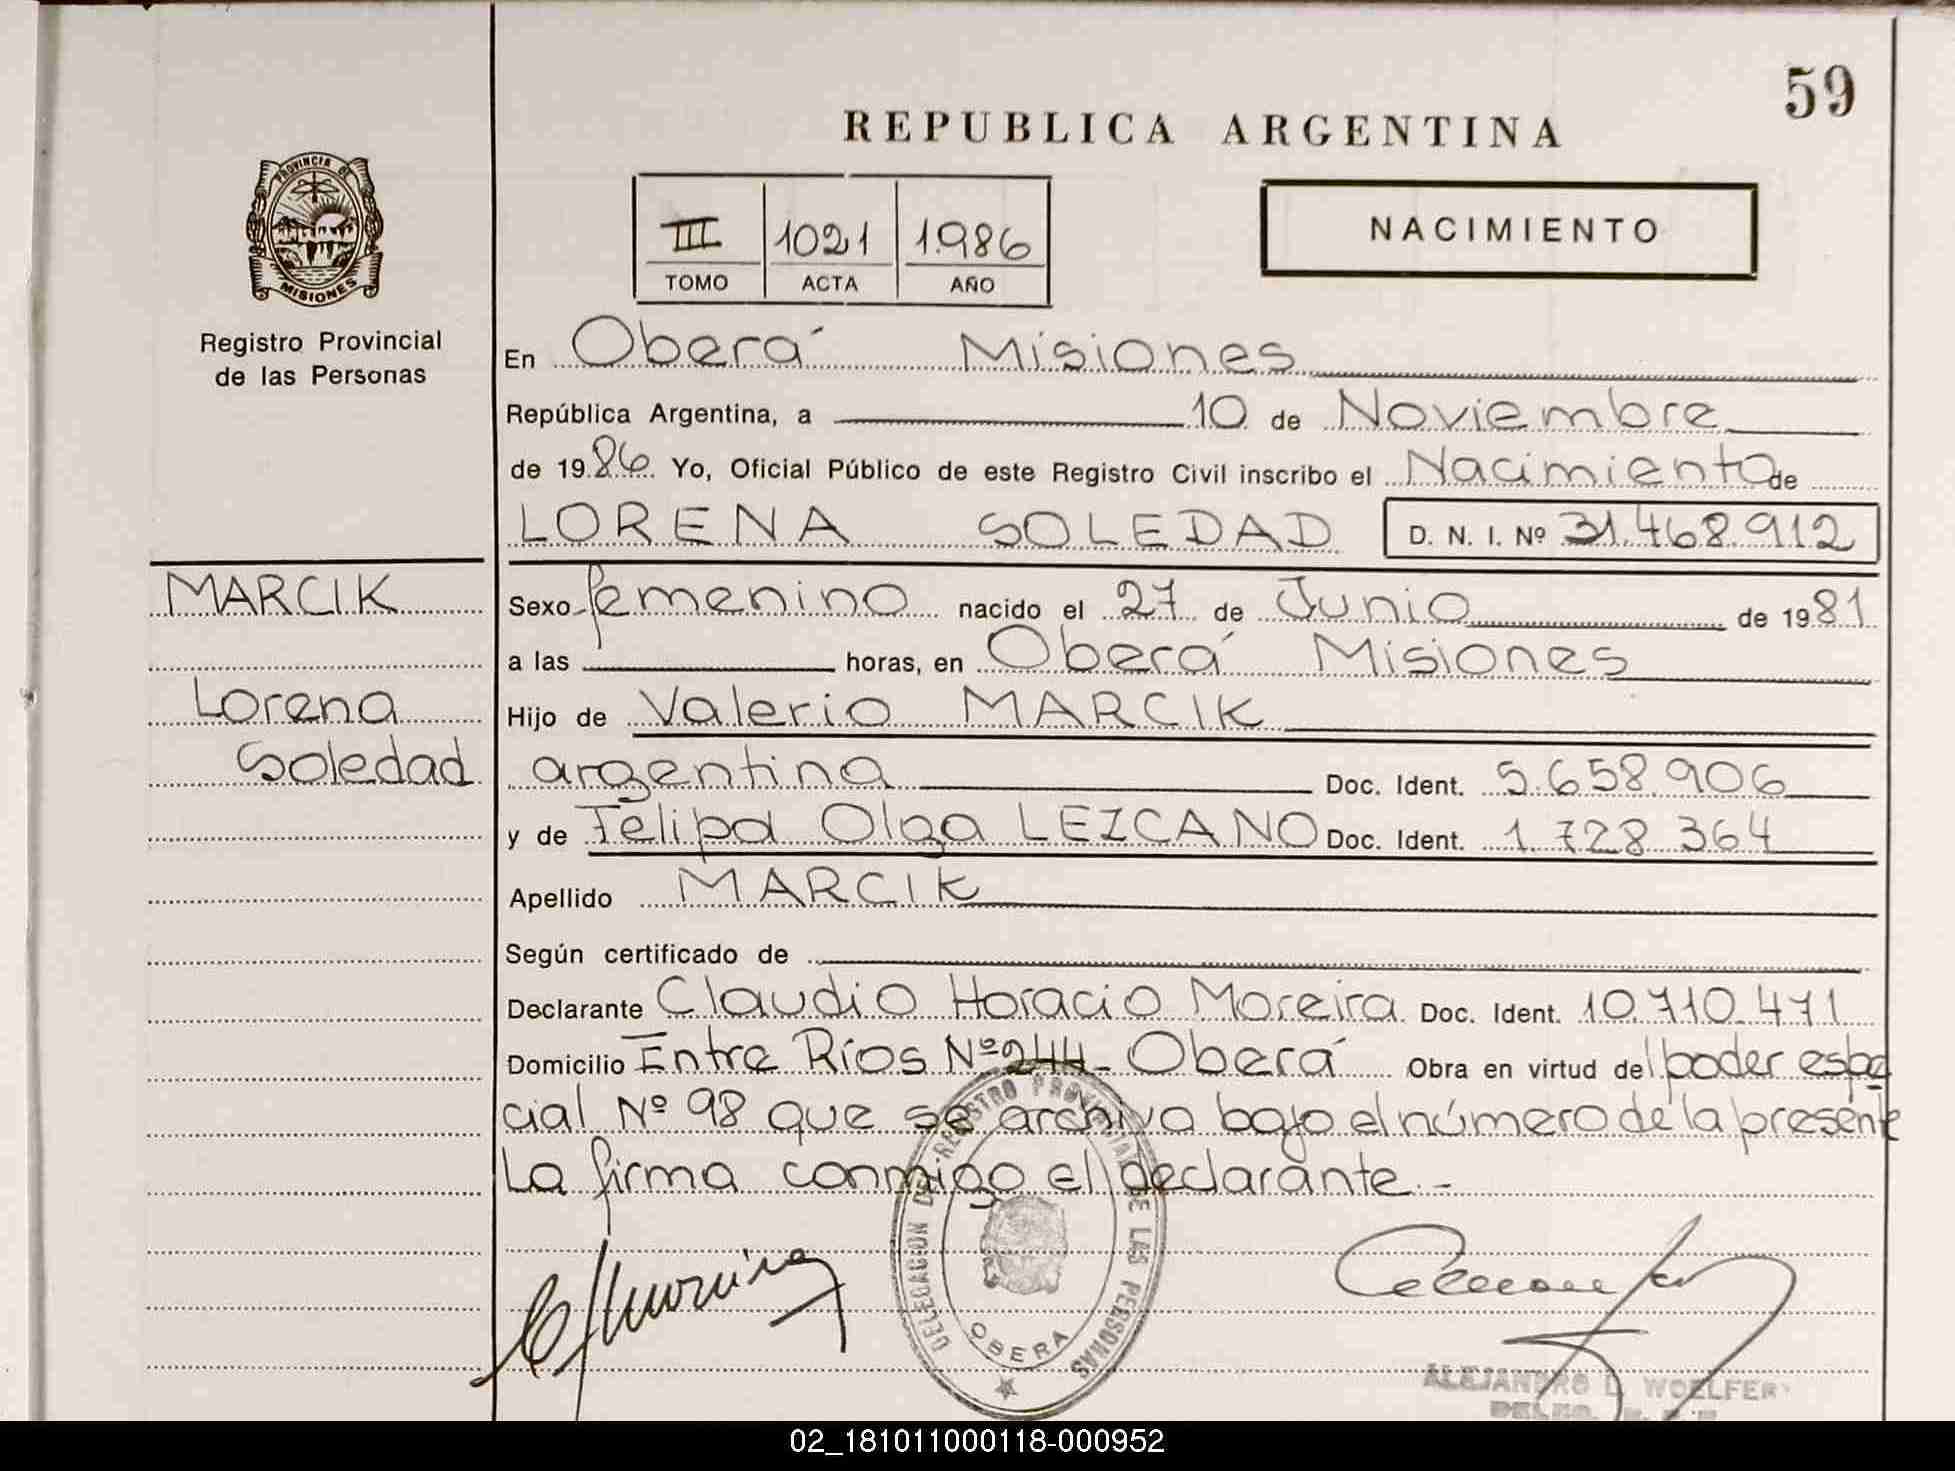 59
REPUBLICA ARGENTINA
PROVINCIA DE
MISIONES
Registro Provincial
de las Personas
III 1021 1.986
TOMO ACTA AÑO
NACIMIENTO
En Oberá Misiones
República Argentina, a 10 de Noviembre
de 1986. Yo, Oficial Público de este Registro Civil inscribo el Nacimiento de
LORENA SOLEDAD D. N. I. Nº 31.468.912
MARCIK
Lorena
Soledad
Sexo femenino nacido el 27 de Junio de 1981
a las horas, en Oberá Misiones
Hijo de Valerio MARCIK
argentina Doc. Ident. 5.658.906
y de Felipa Olga LEZCANO Doc. Ident. 1.728.364
Apellido MARCIK
Según certificado de
Declarante Claudio Horacio Moreira Doc. Ident. 10.710.471
Domicilio Entre Ríos Nº 244- Oberá Obra en virtud del poder espe
cial Nº 98 que se archiva bajo el número de la presente
La firma conmigo el declarante.-
DELEGACION DEL REGISTRO PROVINCIAL DE LAS PERSONAS
OBERA
ALEJANDRO L. WOELFER
02_181011000118-000952